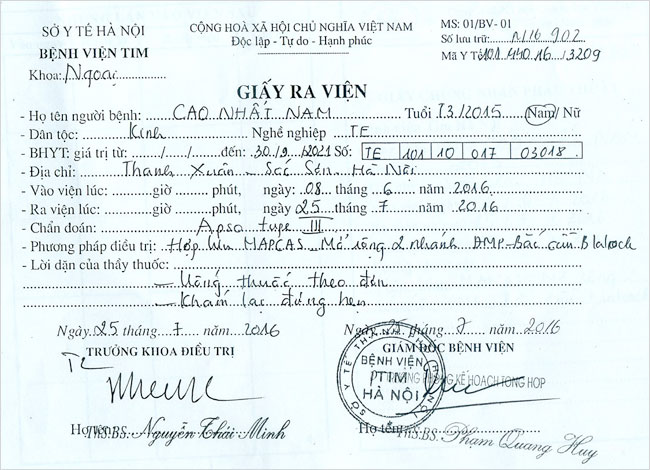 SỞ Y TẾ HÀ NỘI
BỆNH VIỆN TIM
Khoa: Ngoại
CỘNG HOÀ XÃ HỘI CHỦ NGHĨA VIỆT NAM
Độc lập - Tự do - Hạnh phúc
MS: 01/BV- 01
Số lưu trữ: N116 902
Mã Y Tế 101.440.16 /3209
GIẤY RA VIỆN
- Họ tên người bệnh: CAO NHẤT NAM Tuổi 13/2015 Nam/ Nữ
- Dân tộc: Kinh Nghề nghiệp TE
- BHYT: giá trị từ: ....../....../...... đến: 30./9./2021 Số: TE 101 10 017 03018.
- Địa chỉ: Thanh Xuân - Sóc Sơn Hà Nội
- Vào viện lúc: ......giờ ......phút, ngày: 08 tháng 6 năm 2016.
- Ra viện lúc: ......giờ ......phút, ngày 25 tháng 7 năm 2016
- Chẩn đoán: Apso type III
- Phương pháp điều trị: Hợp lưu MAPCAS. Mở rộng 2 nhánh ĐMP - Bắc cầu Blalock
- Lời dặn của thầy thuốc:
- Uống thuốc theo đơn
- Khám lại đúng hẹn
Ngày 25 tháng 7 năm 2016
TRƯỞNG KHOA ĐIỀU TRỊ
Họ tên ThS.BS. Nguyễn Thái Minh
Ngày 25 tháng 7 năm 2016
GIÁM ĐỐC BỆNH VIỆN
PHÒNG KẾ HOẠCH TỔNG HỢP
SỞ Y TẾ T.P HÀ NỘI
BỆNH VIỆN
TIM
HÀ NỘI
Họ tên ThS.BS. Phạm Quang Huy